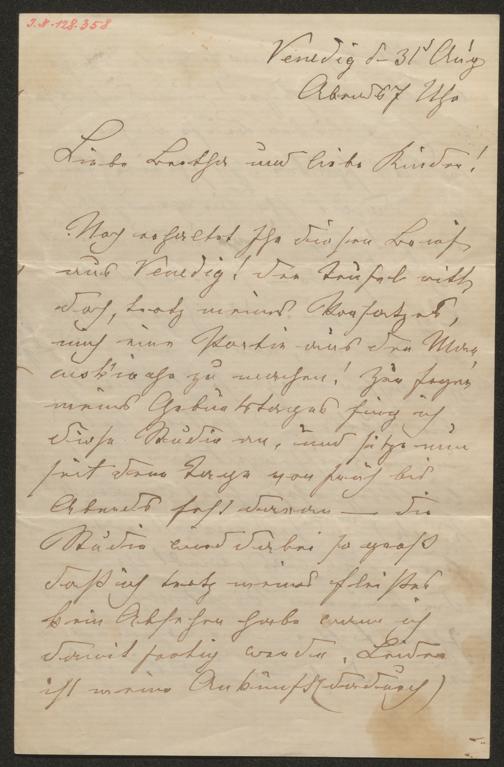 I.N. 128.358
Venedig d. 31t Aug
Abends 7 Uhr
Liebe Bertha und liebe Kinder!
Noch erhaltet Ihr diesen Brief
aus Venedig! der Teufel ritt
doch, trotz meines Vorsatzes,
mich eine Partie aus der Mar
cuskirche zu machen! Zur Feyer
meines Geburtstages fing ich
diese Studie an, und sitze nun
seit dem Tage von früh bis
Abends fest daran — die
Studie wird dabei so groß
daß ich trotz meines Fleißes
kein Absehen habe wann ich
damit fertig werde. Leider
ist meine Ankunft (dadurch)